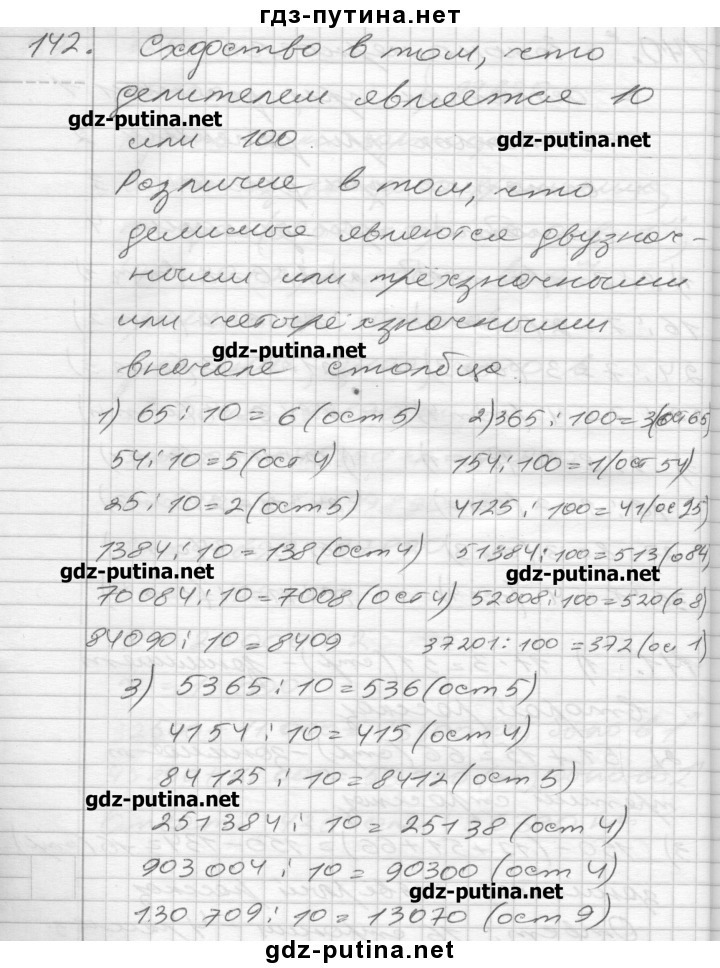 гдз-путина.net
142. Сходство в том, что
делителем является 10
gdz-putina.net
или 100.
gdz-putina.net
Различие в том, что
делимые являются двузнач-
ными или трёхзначными
или четырёхзначными
gdz-putina.net
вначале столбца.
1) 65 : 10 = 6 (ост 5) 2) 365 : 100 = 3 (ост 65)
54 : 10 = 5 (ост 4) 154 : 100 = 1 (ост 54)
25 : 10 = 2 (ост 5) 4125 : 100 = 41 (ос 25)
1384 : 10 = 138 (ост 4) 51384 : 100 = 513 (о 84)
gdz-putina.net gdz-putina.net
70084 : 10 = 7008 (ост 4) 52008 : 100 = 520 (о. 8)
84090 : 10 = 8409 37201 : 100 = 372 (ос 1)
3) 5365 : 10 = 536 (ост 5)
4154 : 10 = 415 (ост 4)
84125 : 10 = 8412 (ост 5)
gdz-putina.net
251384 : 10 = 25138 (ост 4)
903004 : 10 = 90300 (ост 4)
gdz-putina.net
130709 : 10 = 13070 (ост 9)
gdz-putina.net